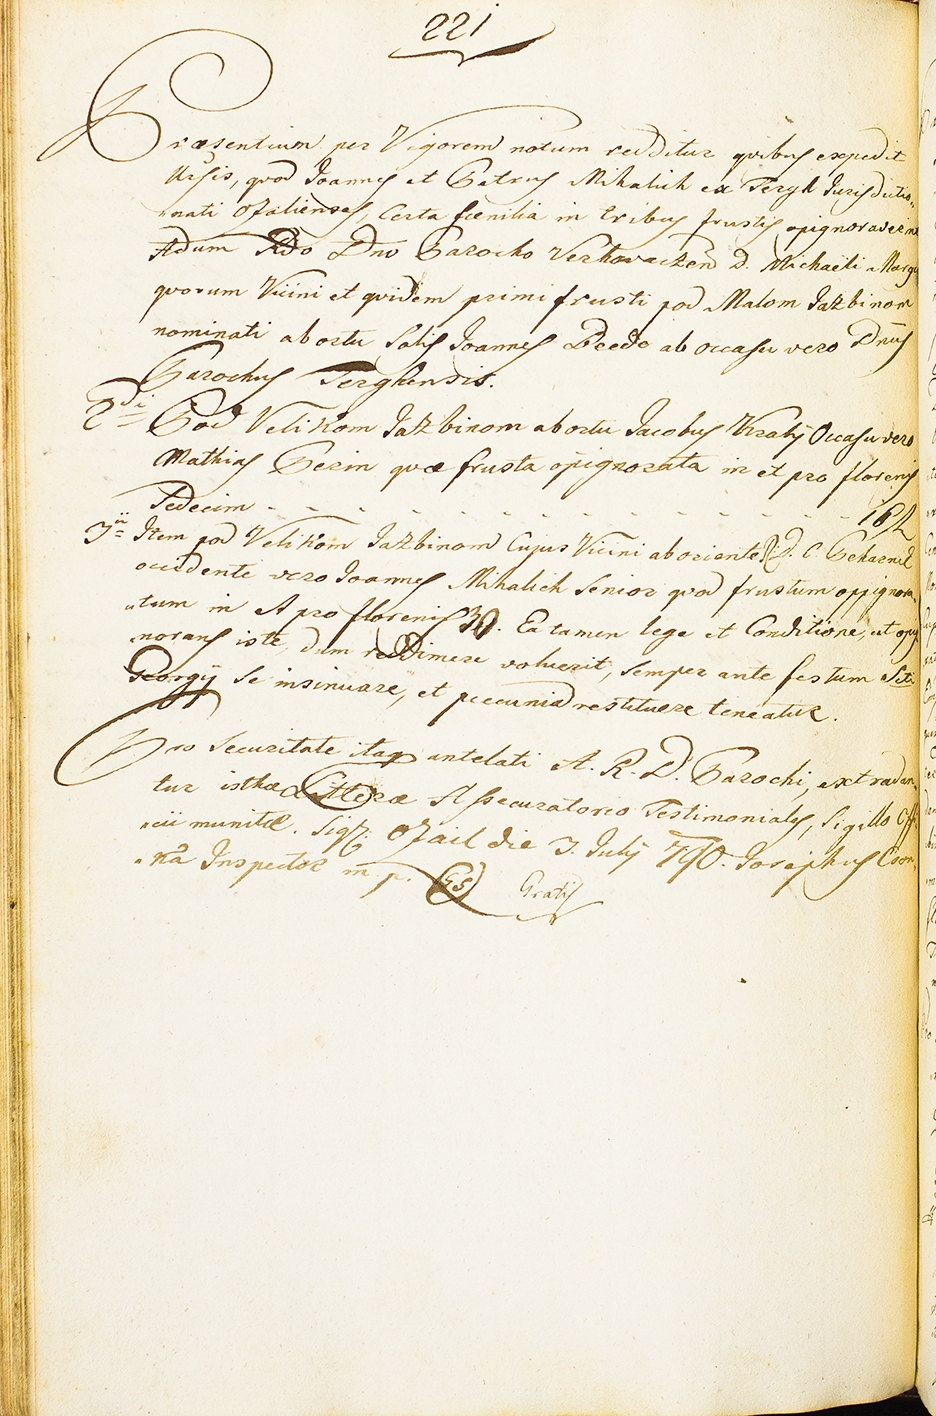 221
Præsentium per Vigorem notum redditur quibus expedit
Ursis, quod Joannes et Petrus Mihalich ex Tergh Jurisdictio-
nati Ozalienses, Certa fœnilia in tribus frustis opignoraverint
Adum Rdo Dno Parocho Verhovaczen D. Michaëli
quorum Vicini et quidem primi frusti pod Malom Jazbinom
nominati ab ortu Solis Joannes Beede ab occasu vero Dnus
Parochus Terghensis.
2di Pod Velikom Jazbinom ab ortu Jacobus Kraly Occasu vero
Mathias Perin quæ frusta opignorata in et pro florenis
Sedecim - - - - - - - - - - - - - 16
3ii Item pod Velikom Jazbinom Cujus Vicini ab oriente D. C.
occidente vero Joannes Mihalich Senior quod frustum oppignora-
tum in A pro florenis 30. Ea tamen lege et Conditione, ut opig
norans iste, dum redimere voluerit, semper ante festum Scti
Georgij se insinuare, et pecuniā restituere teneatur.
Pro Securitate itaq antelati A. R. D. Parochi, extradan-
tur isthæ Litteræ Assecuratorio Testimoniales, Sigillo Offi-
cii munitæ. Sig. Ozail die 3. Julij 790. Josephus
Inspector m. p. (LS) Gratis